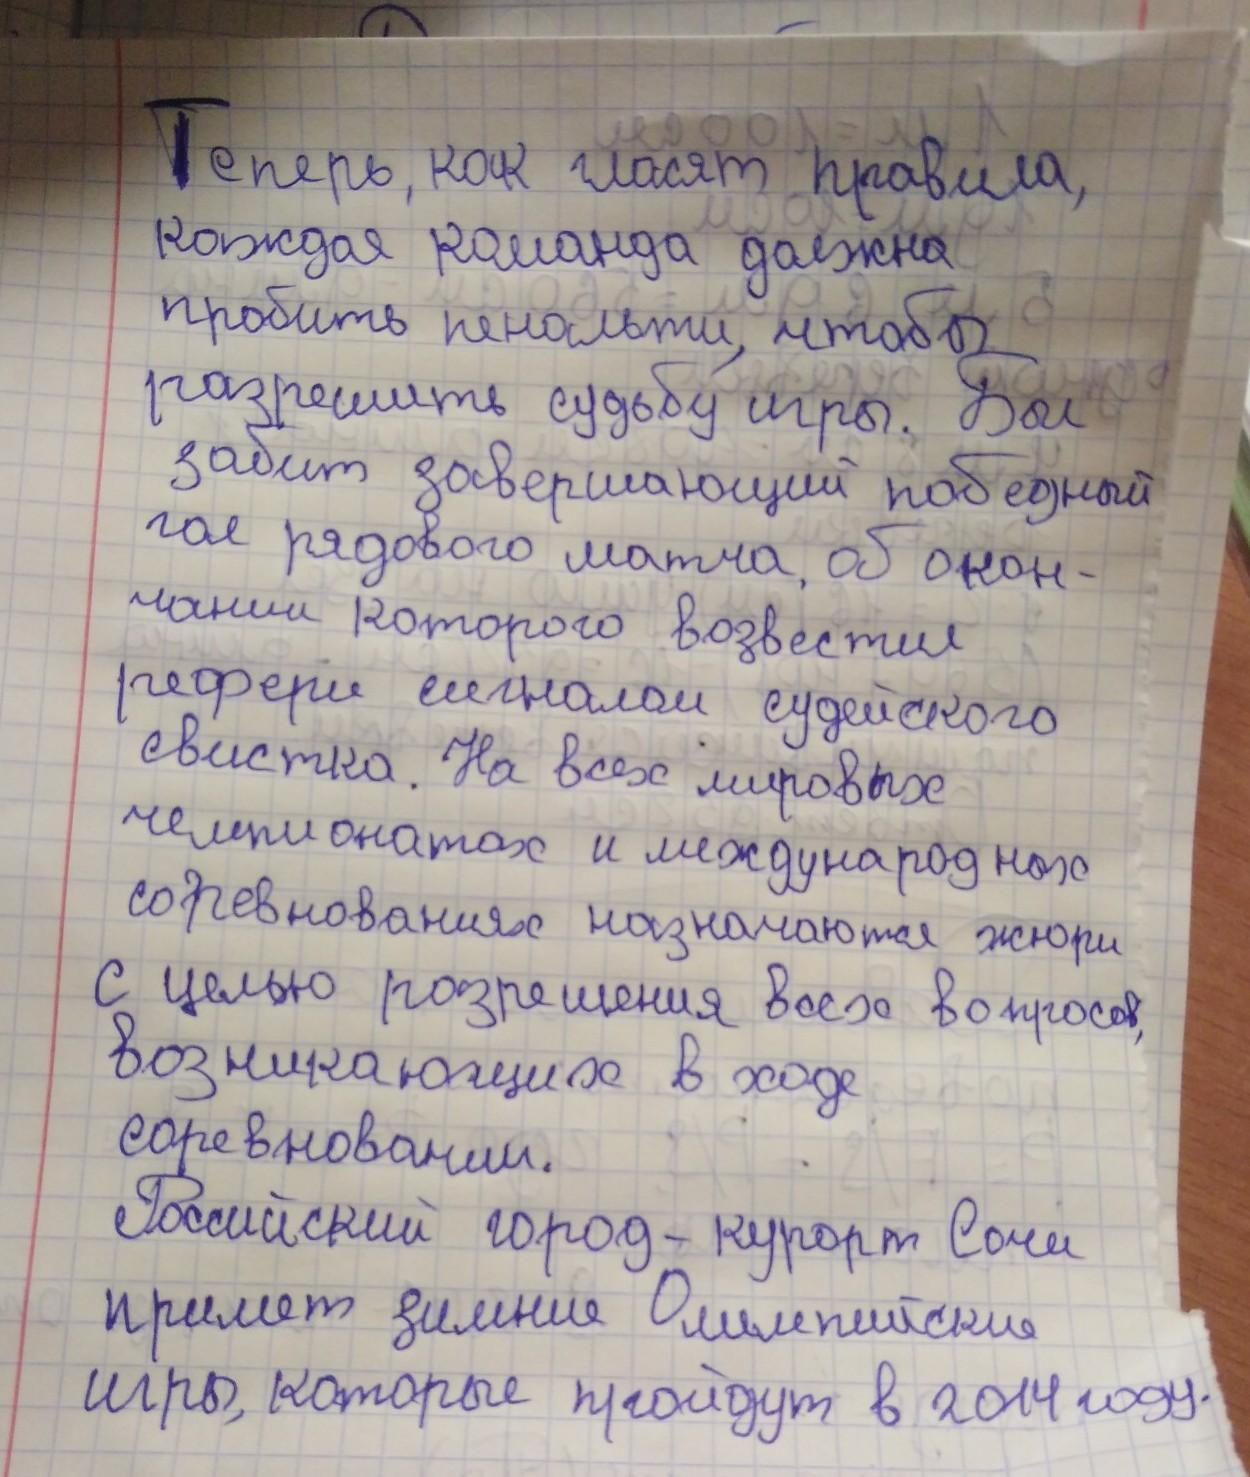 Теперь, как гласят правила,
каждая команда должна
пробить пенальти, чтобы
разрешить судьбу игры. Был
забит завершающий победный
гол рядового матча, об окон-
чании которого возвестил
рефери сигналом судейского
свистка. На всех мировых
чемпионатах и международных
соревнованиях назначаются жюри
с целью разрешения всех вопросов,
возникающих в ходе
соревновании.
Российский город-курорт Сочи
примет зимние Олимпийские
игры, которые пройдут в 2014 году.